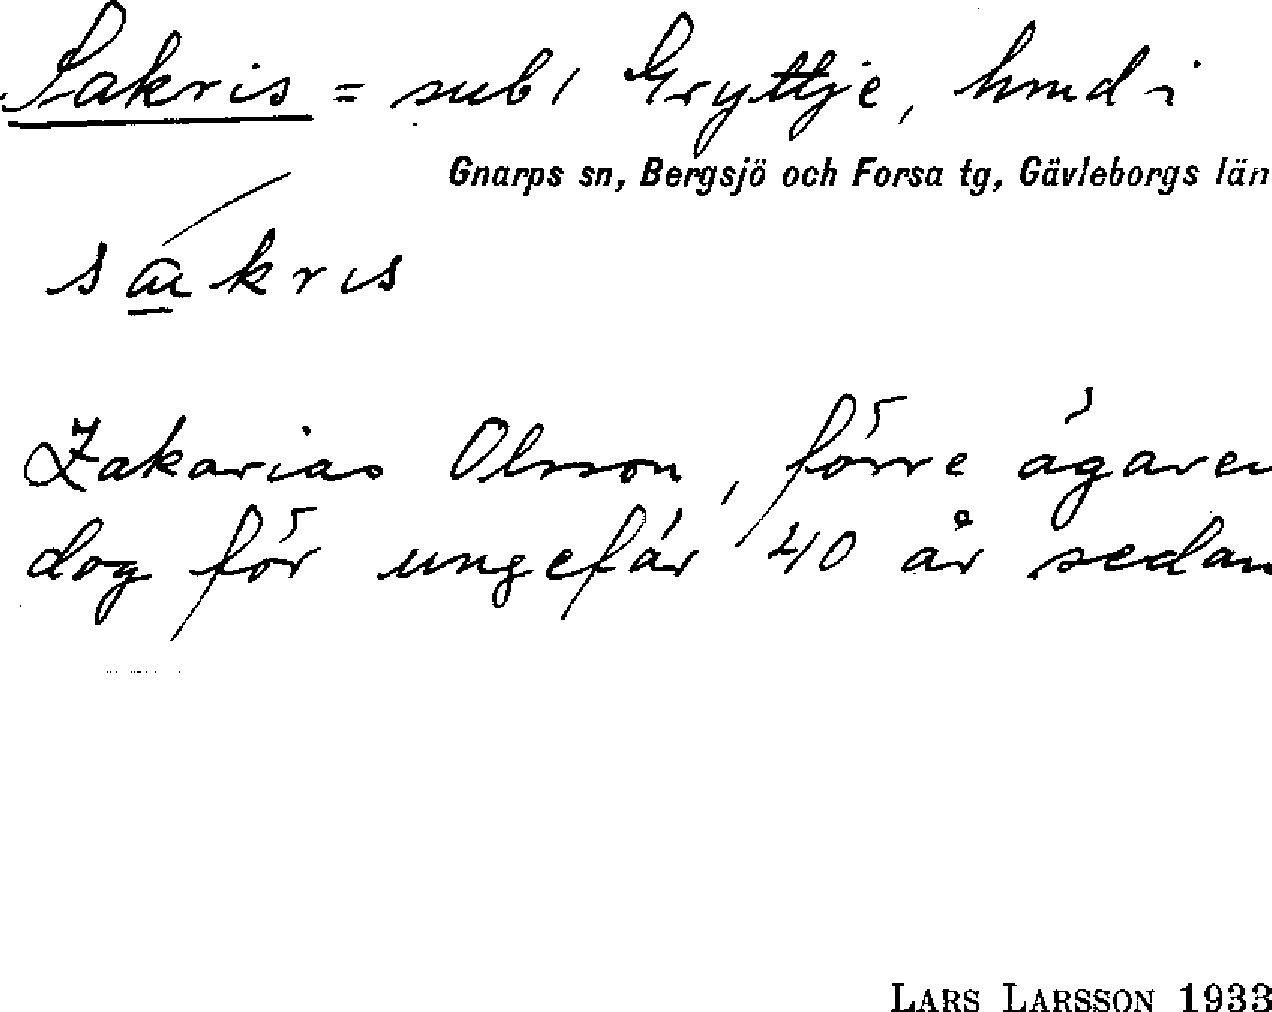 Sakris = sub / Gryttje, hmd i
Gnarps sn, Bergsjö och Forsa tg, Gävleborgs län
sakris
Zakarias Olsson, förre ägaren
dog för ungefär 40 år sedan
LARS LARSSON 1933